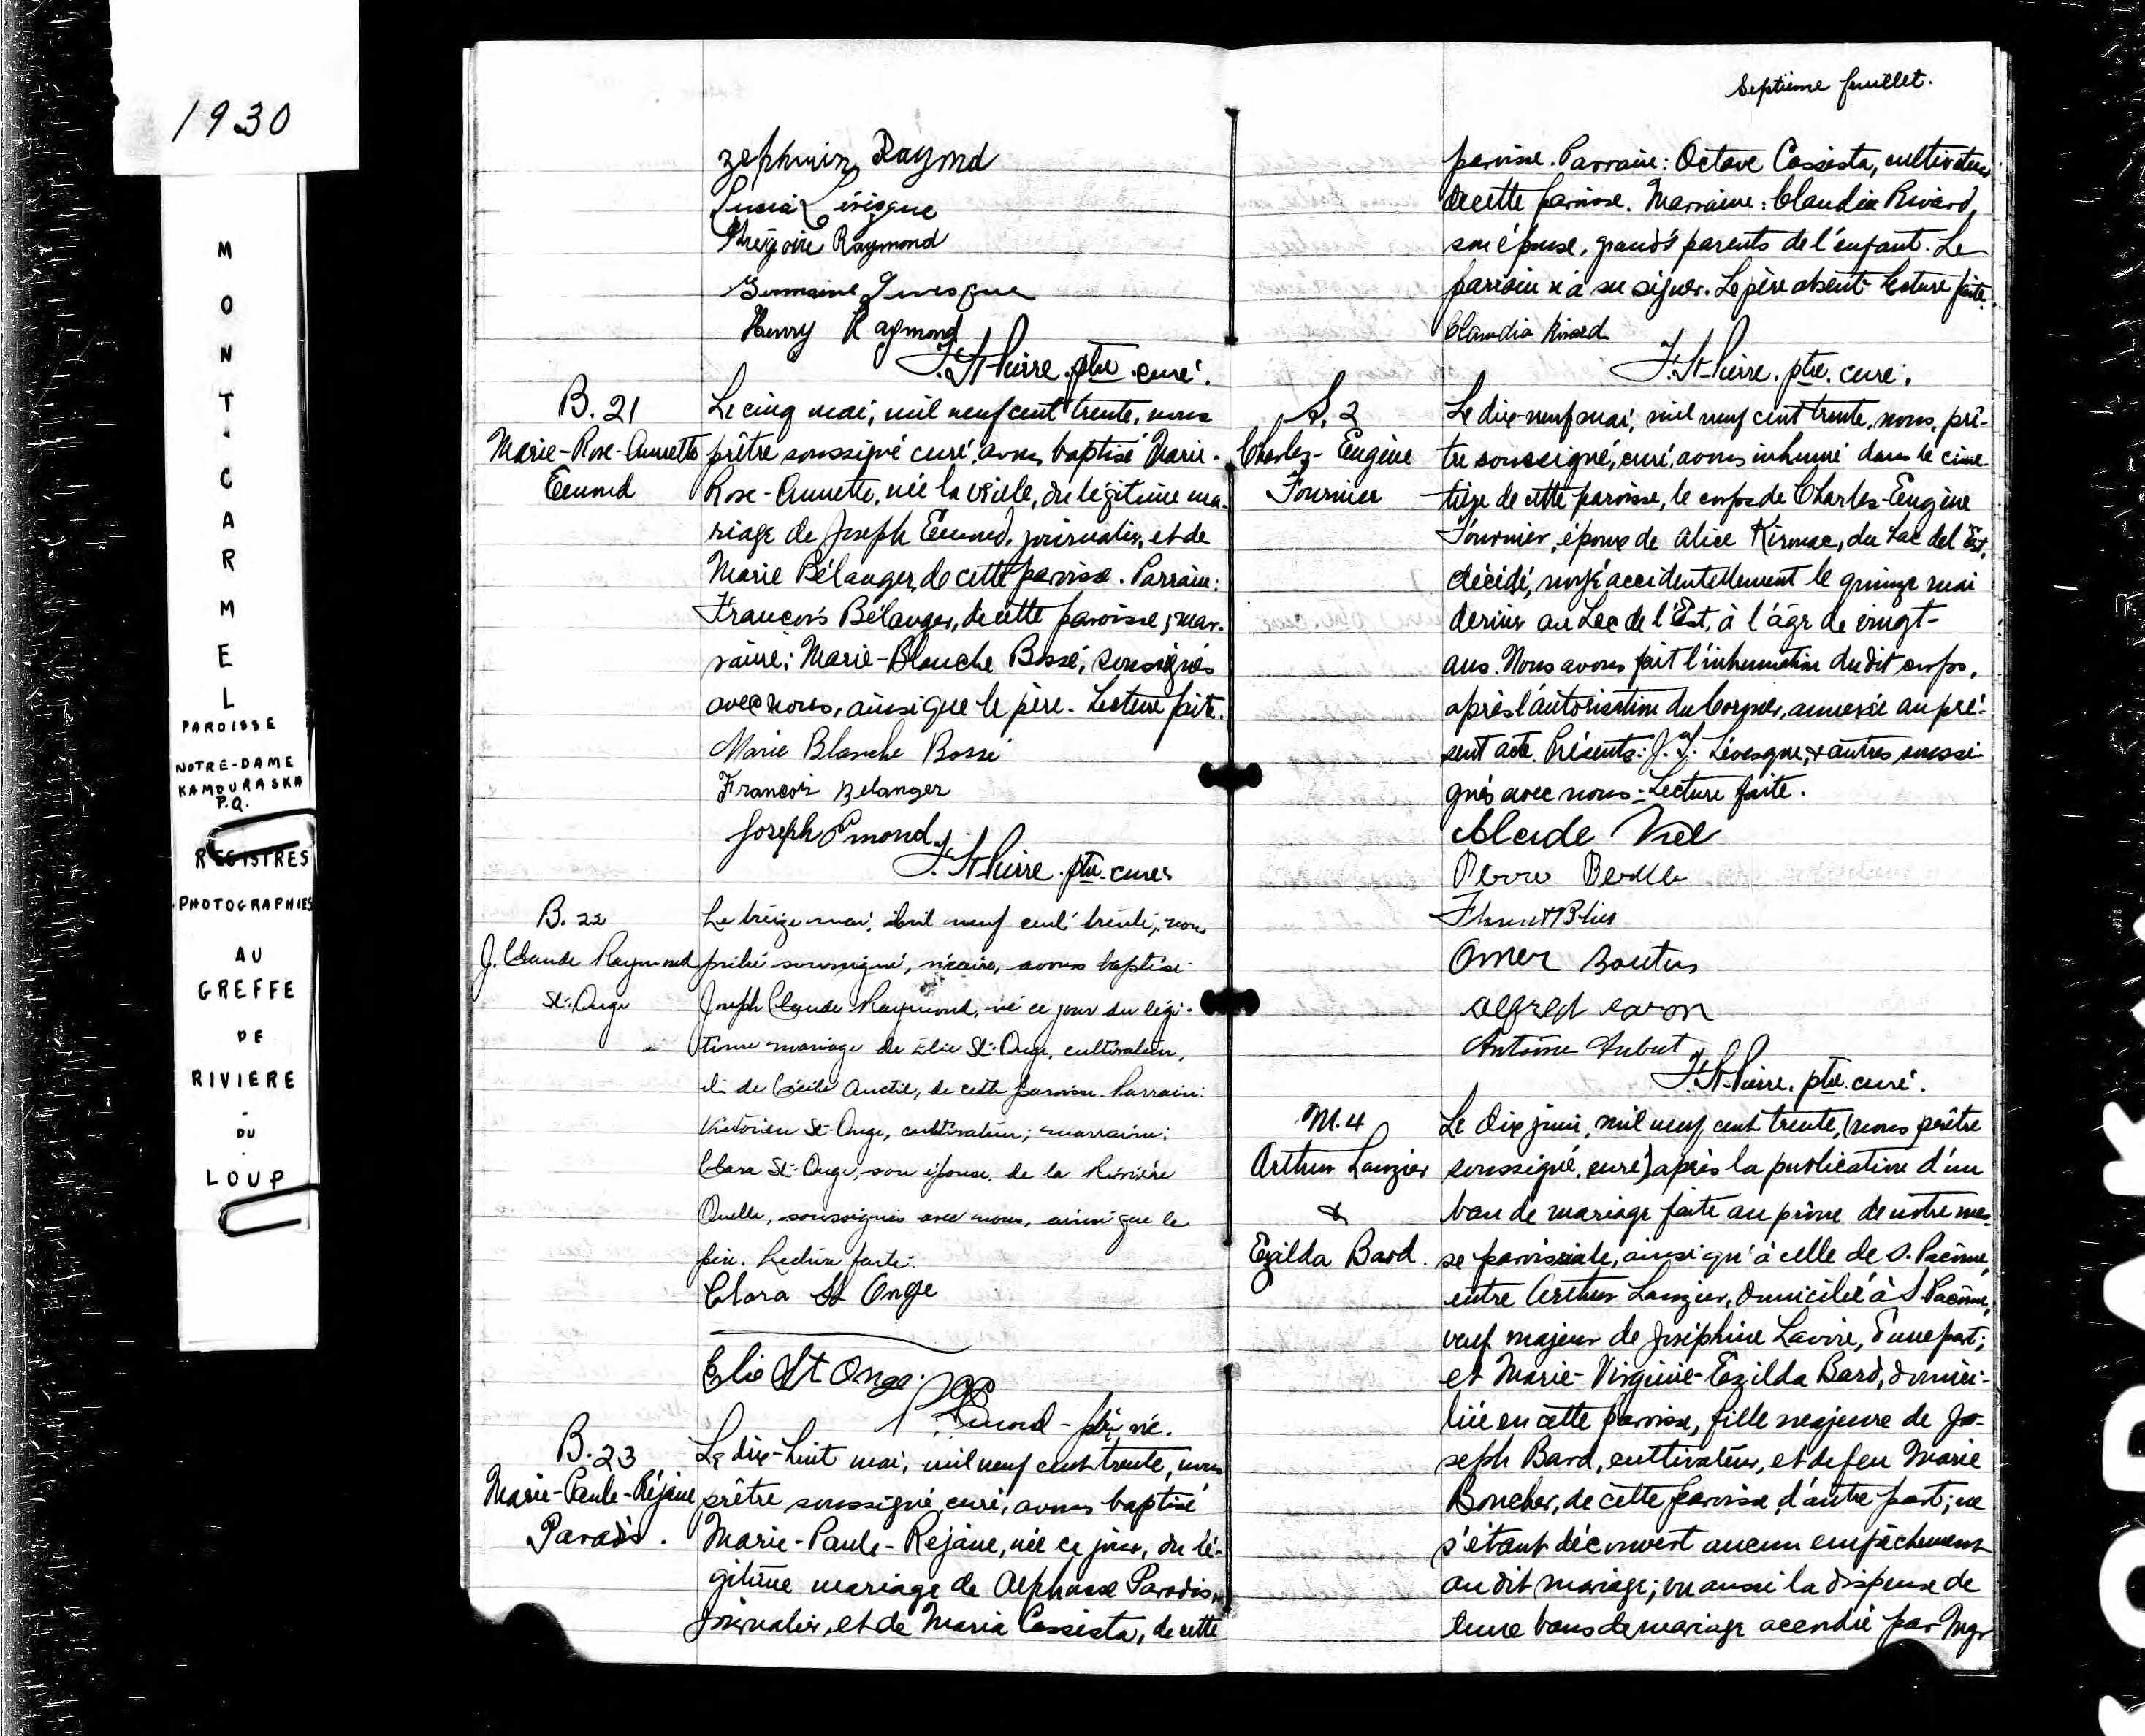 1930
MONT-CARMEL
PAROISSE
NOTRE-DAME
KAMOURASKA
P.Q.
REGISTRES
PHOTOGRAPHIES
AU
GREFFE
DE
RIVIERE
-
DU
LOUP
Raymond
Grégoire Raymond
Germaine
Henry Raymond
J. St-Pierre. ptre. curé.
B. 21
Marie-Rose-Annette
Émond
Le cinq mai, mil neuf cent trente, nous
prêtre soussigné curé, avons baptisé Marie-
Rose-Annette, née la veille, du légitime ma-
riage de Joseph Émond, journalier, et de
Marie Bélanger, de cette paroisse. Parrain:
François Bélanger, de cette paroisse; mar-
raine: Marie-Blanche Bossé, soussignés
avec nous, ainsi que le père. Lecture faite.
Marie Blanche Bossé
François Belanger
Joseph Emond
J. St-Pierre. ptre. curé
B. 22
J. Claude Raymond
St-Onge
Le treize mai, mil neuf cent trente, nous
prêtre soussigné, vicaire, avons baptisé
Joseph Claude Raymond, né ce jour du légi-
time mariage de Élie St-Onge, cultivateur,
et de Cécile Anctil, de cette paroisse. Parrain:
Victorien St-Onge, cultivateur; marraine:
Clara St-Onge, son épouse, de la Rivière
Ouelle, soussignés avec nous, ainsi que le
père. Lecture faite.
Clara St Onge
Elie St Onge
ptre vic.
B. 23
Marie-Paule-Réjane
Paradis.
Le dix-huit mai, mil neuf cent trente, nous
prêtre soussigné, curé, avons baptisé
Marie-Paule-Rejane, née ce jour, du lé-
gitime mariage de Alphonse Paradis,
journalier, et de Maria Cassista, de cette
Septième feuillet.
paroisse. Parrain: Octave Cassista, cultivateur
de cette paroisse. Marraine: Claudia Rivard,
son épouse, grands parents de l'enfant. Le
parrain n'a su signer. Le père absent. Lecture faite.
Claudia Rivard
J. St-Pierre. ptre. curé.
S. 2
Charles-Eugène
Fournier
Le dix-neuf mai, mil neuf cent trente, nous, prê-
tre soussigné, curé, avons inhumé dans le cime-
tière de cette paroisse, le corps de Charles-Eugène
Fournier, époux de Alice Kirouac, du Lac de l'Est,
décédé, noyé accidentellement le quinze mai
dernier au Lac de l'Est, à l'âge de vingt-
ans. Nous avons fait l'inhumation du dit corps,
après l'autorisation du Coroner, annexée au pré-
sent acte. Présents: J. Lévesque, & autres soussi-
gnés avec nous. Lecture faite.
Omer Boutin
Alfred Caron
Antoine Aubut
J. St-Pierre. ptre. curé.
M. 4
Arthur Lauzier
&
Ezilda Bard.
Le dix juin, mil neuf cent trente, (nous prêtre
soussigné, curé) après la publication d'un
ban de mariage faite au prône de notre mes-
se paroissiale, ainsi qu'à celle de S. Pacôme,
entre Arthur Lauzier, domicilié à S. Pacôme,
veuf majeur de Joséphine Lavoie, d'une part;
et Marie-Virginie-Ezilda Bard, domici-
liée en cette paroisse, fille majeure de Jo-
seph Bard, cultivateur, et de feu Marie
Boucher, de cette paroisse, d'autre part; ne
s'étant découvert aucun empêchement
au dit mariage; vu aussi la dispense de
bans de mariage accordée par Mgr